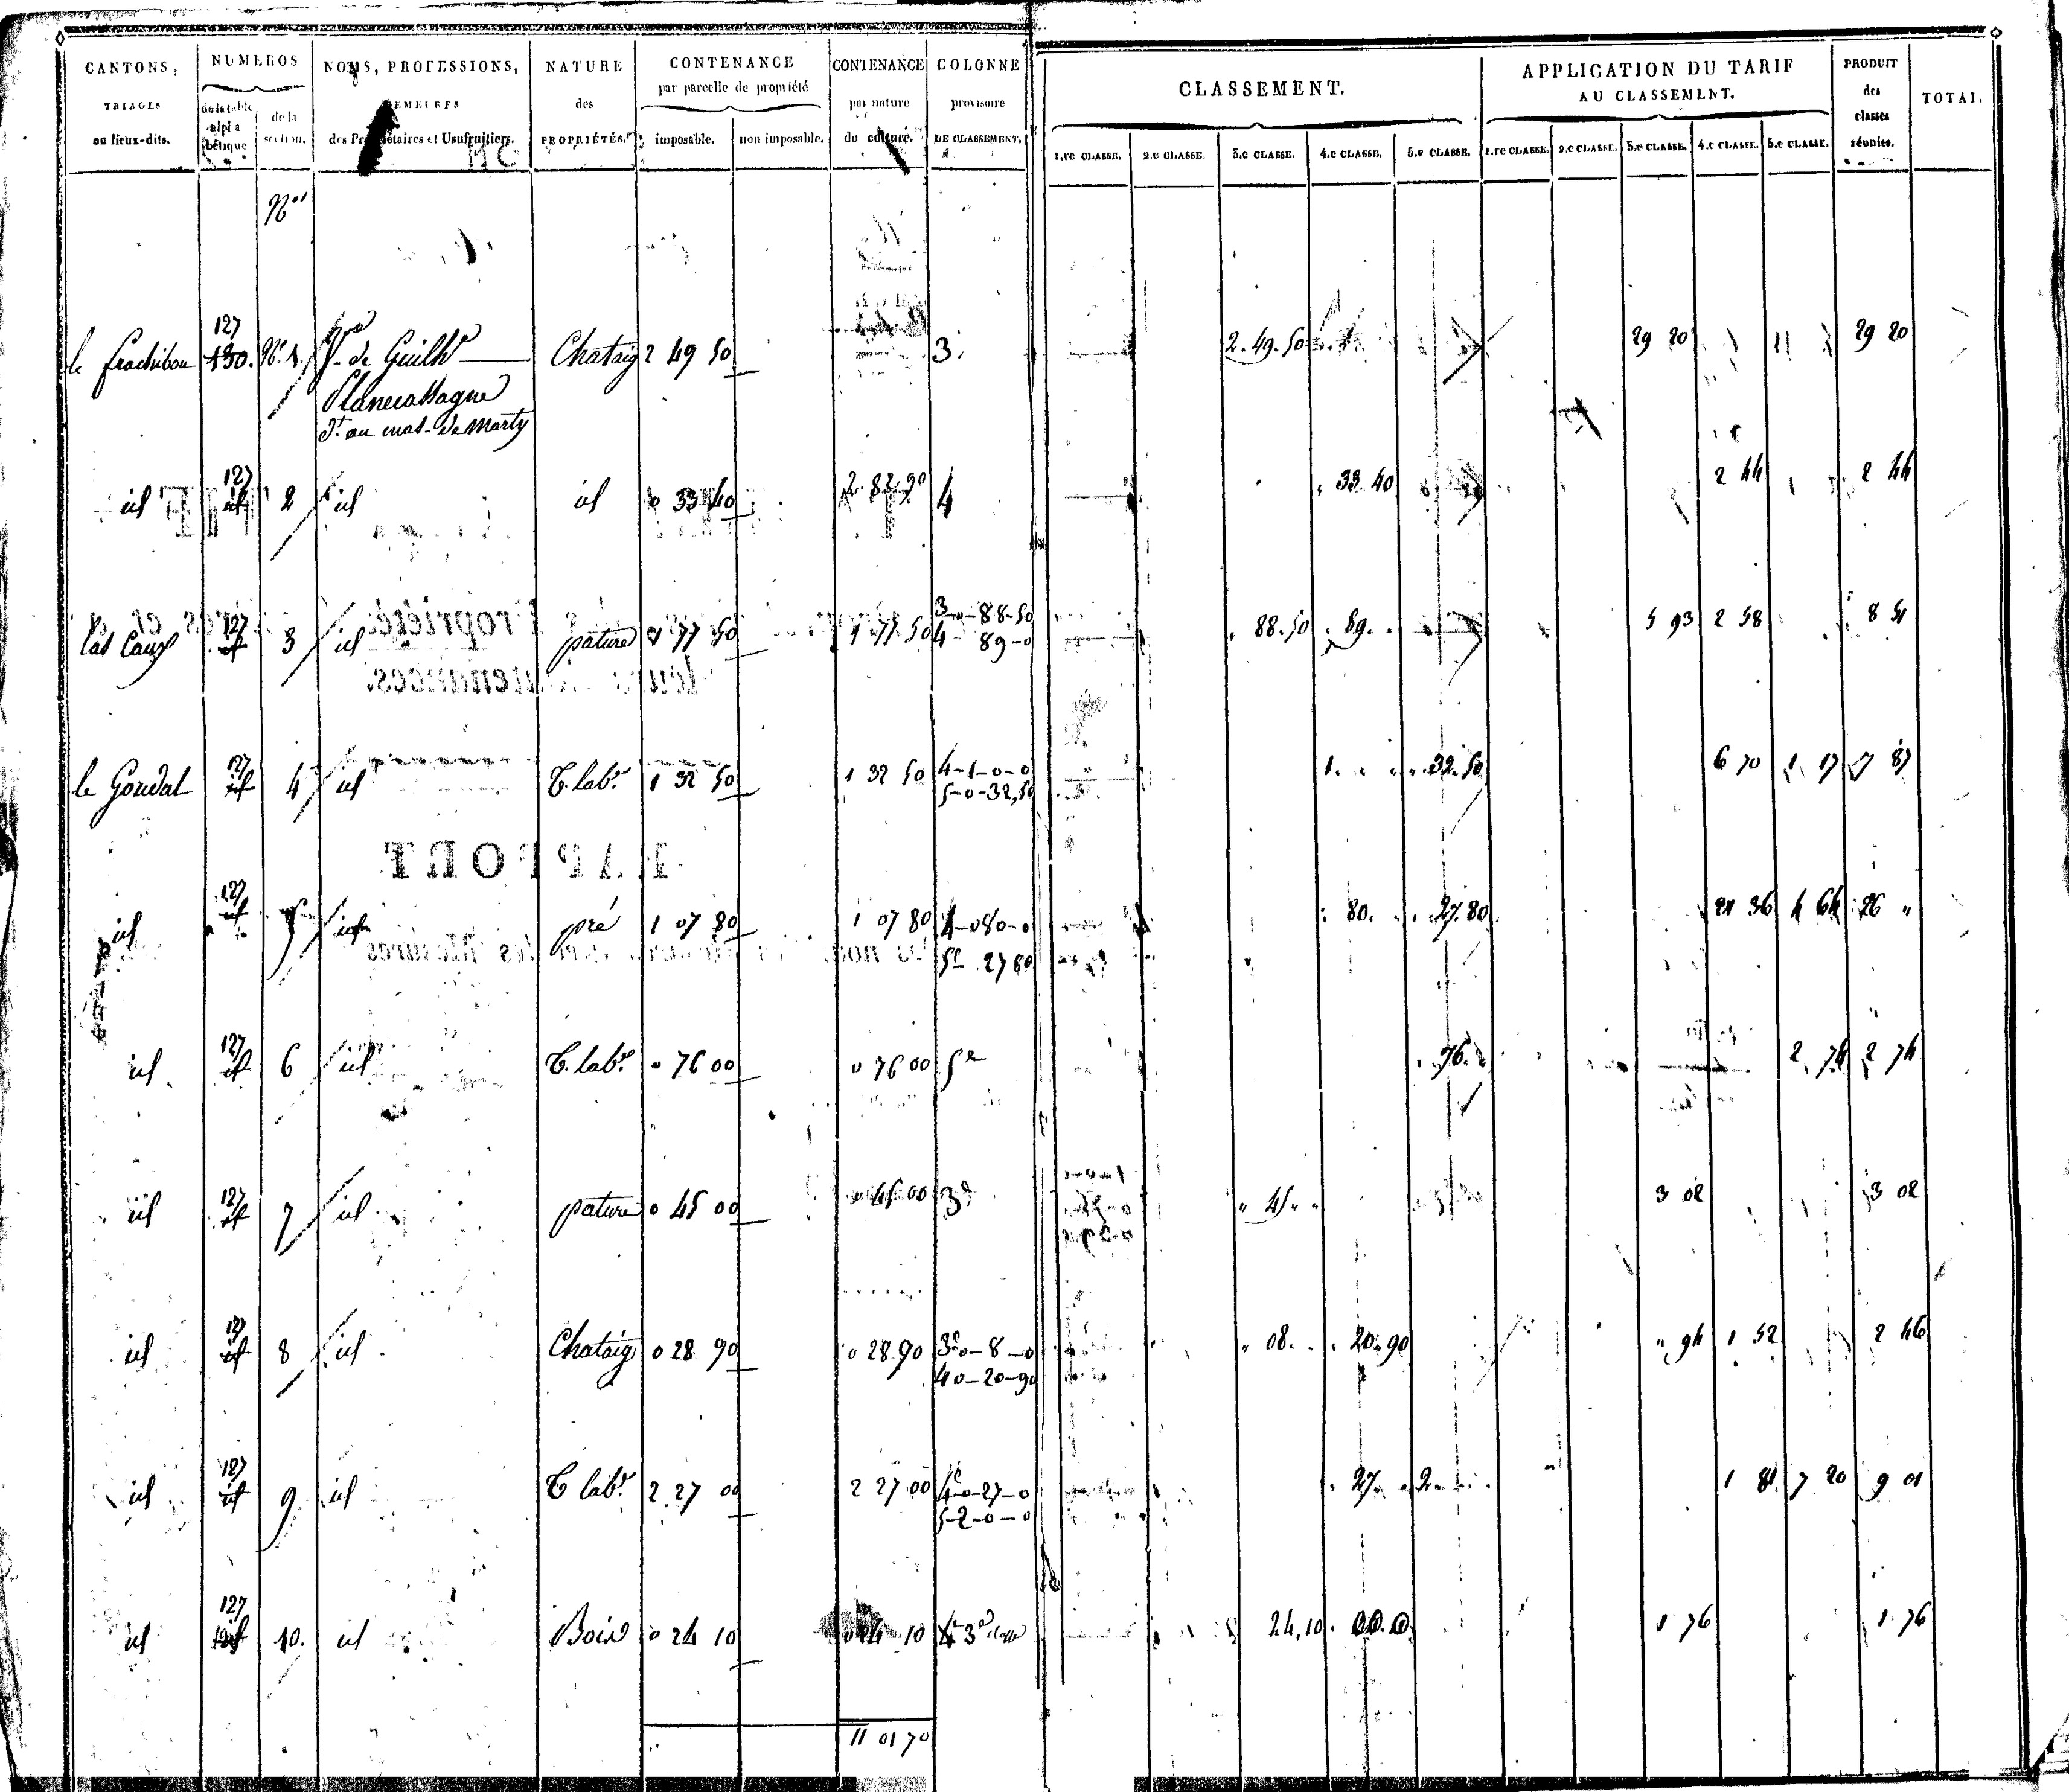 CANTONS, NUMEROS NOMS, PROFESSIONS, NATURE CONTENANCE CONTENANCE COLONNE CLASSEMENT. APPLICATION DU TARIF PRODUIT TOTAL.
TRIAGES DEMEURES des par parcelle de propriété par nature provisoire AU CLASSEMENT. des
ou lieux-dits. de la table alphabétique de la section. des Propriétaires et Usufruitiers. PROPRIÉTÉS. imposable. non imposable. de culture. DE CLASSEMENT. 1.re CLASSE. 2.e CLASSE. 3.e CLASSE. 4.e CLASSE. 5.e CLASSE. 1.re CLASSE. 2.e CLASSE. 3.e CLASSE. 4.e CLASSE. 5.e CLASSE. classes réunies.
Nos
127
le 130. No 1. Ve de Guilhe Chataig 2 49 50 3. 2. 49. 50 29 20 29 20
Planecassagne
dt au mas de Marty
127
id id 2 id id 0 33 40 2. 82. 90 4 33 40 2 44 2 44
127 3-0-88-50
las Caux id 3 id pature 1 77 50 1 77 50 4 89-0 88. 50 89. 5 93 2 58 8 51
127
le Goudal id 4 id T. labe 1 32 50 1 32 50 4-1-0-0 1. 32. 50 6 70 1 17 7 87
5-0-32,50
127
id id 5 id pré 1 07 80 1 07 80 4-080-0 80. 27. 80 21 36 4 64 26 "
5e 27 80
127
id id 6 id T. labe 0 76 00 0 76 00 5e 76. 2 74 2 74
127
id id 7 id pature 0 45 00 0 45 00 3e " 45 " " 3 02 3 02
127
id id 8 id Chataig 0 28 90 0 28 90 3e 0-8-0 " 08. 20. 90 " 94 1 52 2 46
4 0-20-90
127
id id 9 id T labe 2 27 00 2 27 00 4e 0-27-0 27. 2 1 81 7 20 9 01
5-2-0-0
127
id id 10. id Bois 0 24 10 0 24 10 3e classe 24. 10 1 76 1 76
11 01 70